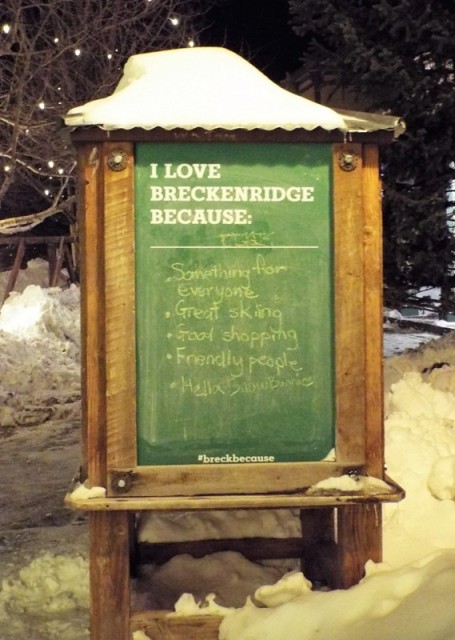 I LOVE
BRECKENRIDGE
BECAUSE:
• Something for
everyone
• Great skiing
• Good shopping
• Friendly people
• Hella Snow Bunnies
#breckbecause